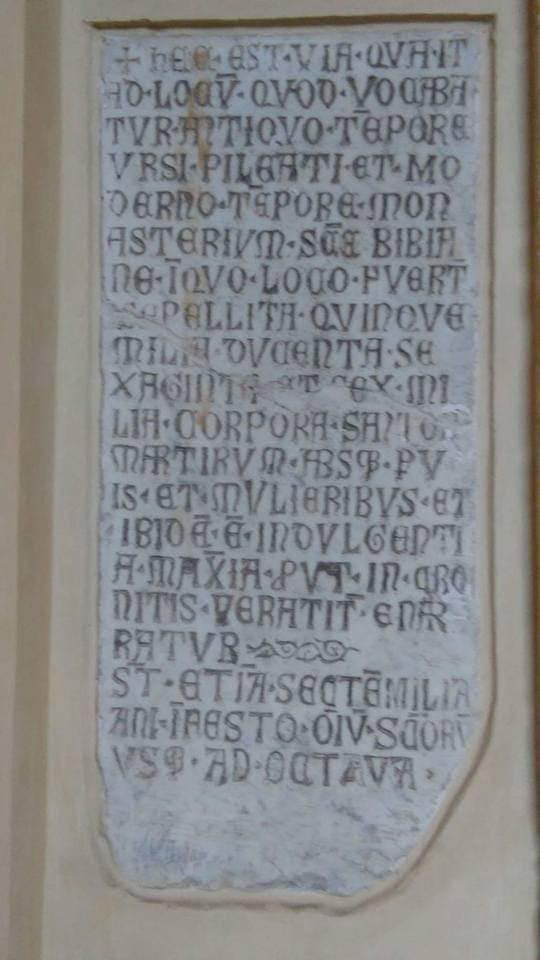 + HEC · EST · VIA · QVA · IT
AD · LOCV̅ · QVOD · VOCABA
TVR · ANTIQVO · TE̅PORE
VRSI · PILEATI · ET · MO
DERNO · TE̅PORE · MON
ASTERIVM · SC̅E BIBIA
NE · I̅QVO · LOCO · FVERT̅
SEPELLITA · QVINQVE
MILIA · DVCENTA · SE
XAGINTA ET SEX · MI
LIA · CORPORA · SANTOR
MARTIRVM · ABSQ̅ · PV
IS · ET · MVLIERIBVS · ET
IBIDE̅ · E̅ · INDVLGENTI
A · MAX̅IA · PVT · IN · CRO
NITIS · VERATIT̅ · ENAR
RATVR
ST̅ · ETIA̅ · SECTE̅MILIA
ANI · I̅FESTO · OI̅V̅ · SC̅ORV̅
VSQ̅ · AD · OCTAVA ·